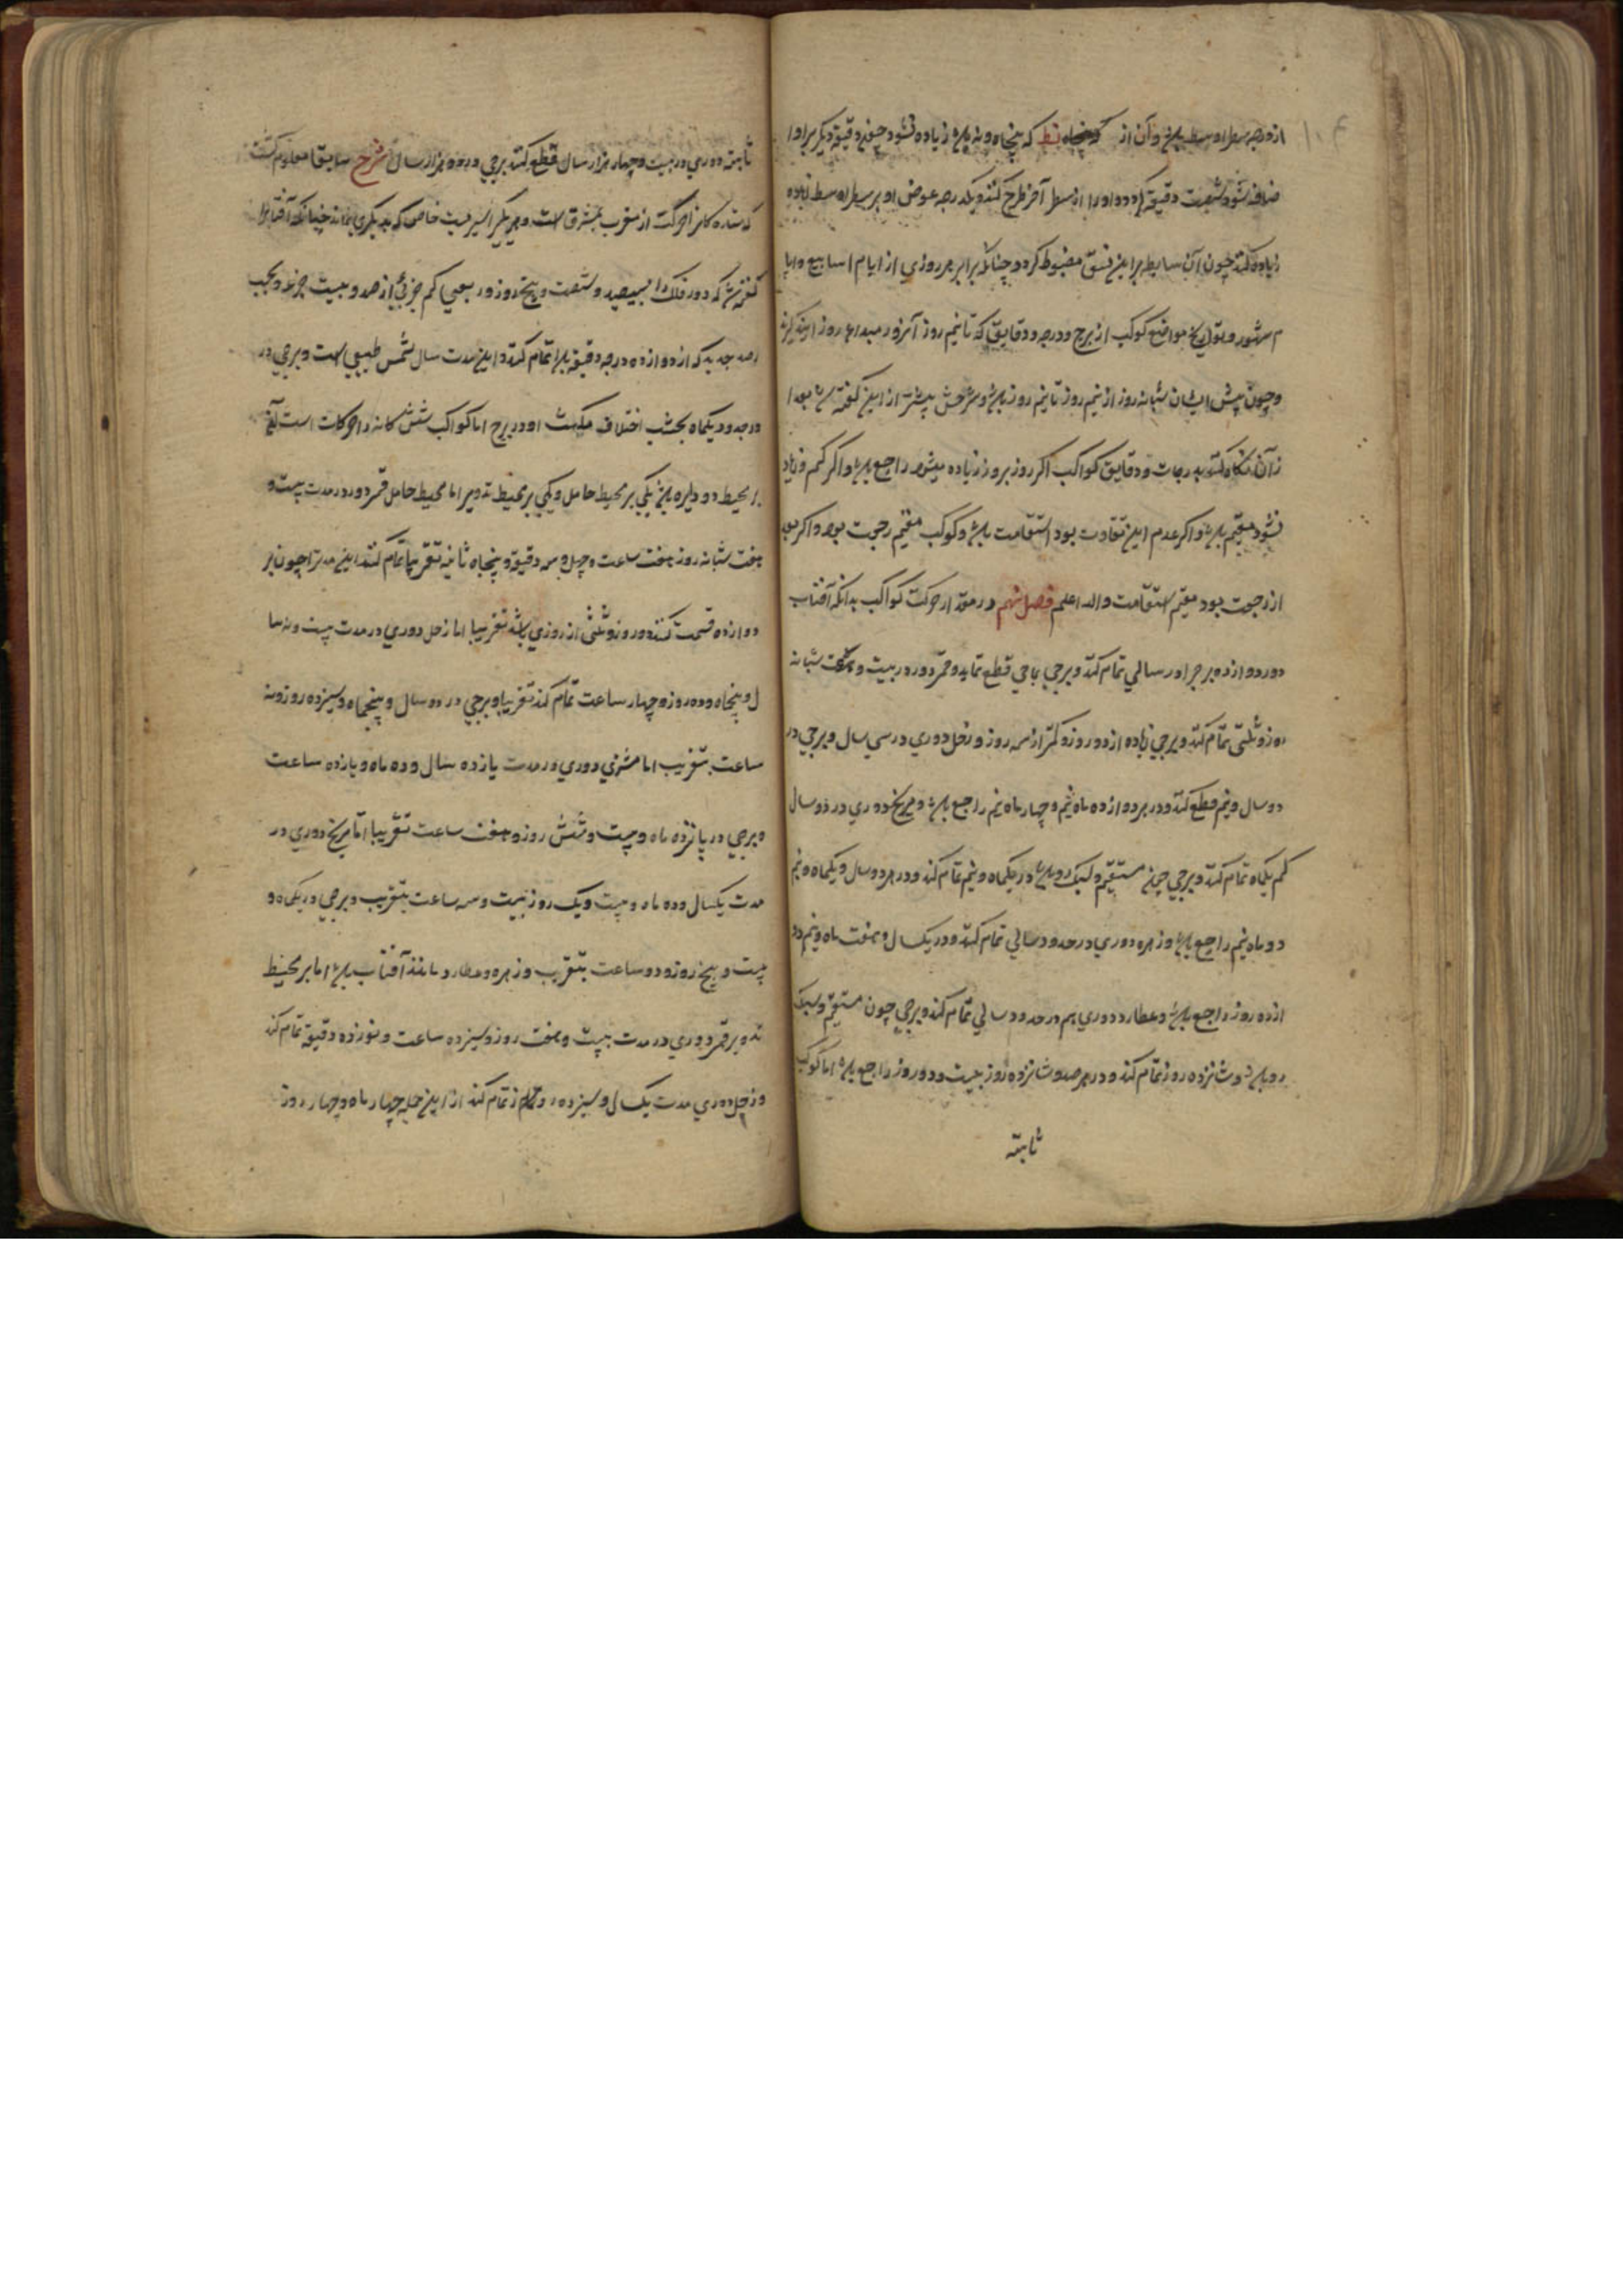 از درجه سطر اوسط باشد و آن از نط که پنجاه و نه باشد زیاده نشود چون دقیقه دیگر برو
اضافه شود شصت دقیقه گردد او را از سطر آخر طرح کنند و یکدرجه عوض او بر سطر اوسط زیاده
زیاده کنند چون آن سابطه براین نسق مضبوط کرد و چنانکه برابر هر روزی از ایام اسابیع و ایا
م شهور و تواریخ مواضع کوکب از برج و درجه و دقایق که تا نیم روز آنروز مبداء روز آینده گیرند
و چون پیش ایشان شبانه روز از نیم روز تا نیم روز باشد و شرحش پیشتر از این گفته شد بعد ا
ز آن نگاه کنند بدرجات و دقایق کواکب اگر روز بروز زیاده میشود راجع باشد و اگر کم و زیاد
نشود مقیم باشد و اگر عدم این تفاوت بود استقامت باشد و کوکب مقیم رجعت بود و اگر بعد
از رجعت بود مقیم استقامت والله اعلم فصل نهم در مقدار حرکت کواکب بدانکه آفتاب
دور دوازده برج را در سالی تمام کند و برجی بماهی قطع نماید و قمر دور در بیست و هفت شبانه
روز و ثلثی تمام کند و برجی زیاده از دو روز و کمتر از سه روز و زحل دوری در سی سال و برجی در
دو سال و نیم قطع کند و در هر دوازده ماه نیم و چهار ماه نیم راجع باشد و مریخ دوری در دو سال
کم یکماه تمام کند و برجی چون مستقیم و سبک رو باشد در یکماه و نیم تمام کند و در هر دو سال و یکماه و نیم
دو ماه نیم راجع باشد و زهره دوری در حدود سالی تمام کند و در یکسال و هفت ماه و نیم دو
از ده روز راجع باشد و عطارد دوری هم در حدود سالی تمام کند و برجی چون مستقیم و سبک
رو باشد و شانزده روز تمام کند و در هر صد و شانزده روز بیست و دو روز راجع باشد اما کوکب
ثابته
ثابته دوری در بیست و چهار هزار سال قطع کند برجی در دو هزار سال شرح سابقا معلوم گشت
که ستاره کانرا حرکت از مغرب بمشرق است و هر یکی را سیریست خاص که بدیگری نماند چنانکه آفتابرا
گفته شد که دور فلک را بسیصد و شصت و پنج روز و ربعی کم جزئی از صد و بیست جزء و بحسب
رصد جدید که از دوازده درجه دقیقه باشد تمام کند و این مدت سال شمسی طبیعی است و برجی در
در حدود یکماه بحسب اختلاف مکث او در برج اما کواکب شش کانه را حرکات است
بر محیط دو دایره یکی بر محیط حامل و یکی بر محیط تدویر اما محیط حامل قمر دور در مدت بیست و
هفت شبانه روز هفت ساعت و چهل و سه دقیقه و پنجاه ثانیه تقریبا تمام کند این مدت را چون بر
دوازده قسمت کنند دو روز و ثلثی از روزی باشد تقریبا اما زحل دوری در مدت بیست و نه سا
ل و پنجاه و ده روز و چهار ساعت تمام کند تقریبا و برجی در دو سال و پنجماه و سیزده روز و نه
ساعت بتقریب اما مشتری دوری در مدت یازده سال و ده ماه و یازده ساعت
و برجی در یازده ماه و بیست و شش روز و هفت ساعت تقریبا اما مریخ دوری در
مدت یکسال و ده ماه و بیست و یک روز بیست و سه ساعت بتقریب و برجی در یکماه و
بیست و پنج روز و دو ساعت بتقریب و زهره و عطارد مانند آفتاب باشد اما بر محیط
تدویر قمر دوری در مدت بیست و هفت روز و سیزده ساعت و نوزده دقیقه تمام کند
و زحل دوری مدت یکسال و سیزده روز تمام کند از این جمله چهار ماه و چهار روز